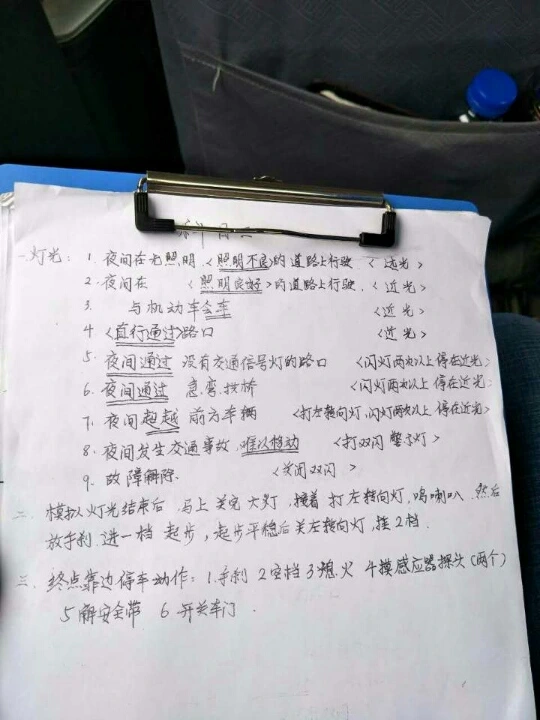 一.灯光: 1. 夜间在无照明.<照明不良>的道路上行驶. <远光>
2. 夜间在 <照明良好>的道路上行驶. <近光>
3. 与机动车会车 <近光>
4 <直行通过>路口 <近光>
5. 夜间通过 没有交通信号灯的路口 <闪灯两次以上 停在近光>
6. 夜间通过 急弯.拱桥 <闪灯两次以上 停在近光>
7. 夜间超越 前方车辆 <打左转向灯,闪灯两次以上 停在近光>
8. 夜间发生交通事故.难以移动 <打双闪 警示灯>
9. 故障解除. <关闭双闪>
二. 模拟灯光结束后 马上 关完 大灯, 接着 打左转向灯, 鸣喇叭. 然后
放手刹 进一档 起步, 起步平稳后 关左转向灯, 挂2档.
三. 终点靠边停车动作: 1.手刹 2空档 3熄火 4摸感应器探头(两个)
5解安全带 6.开关车门.